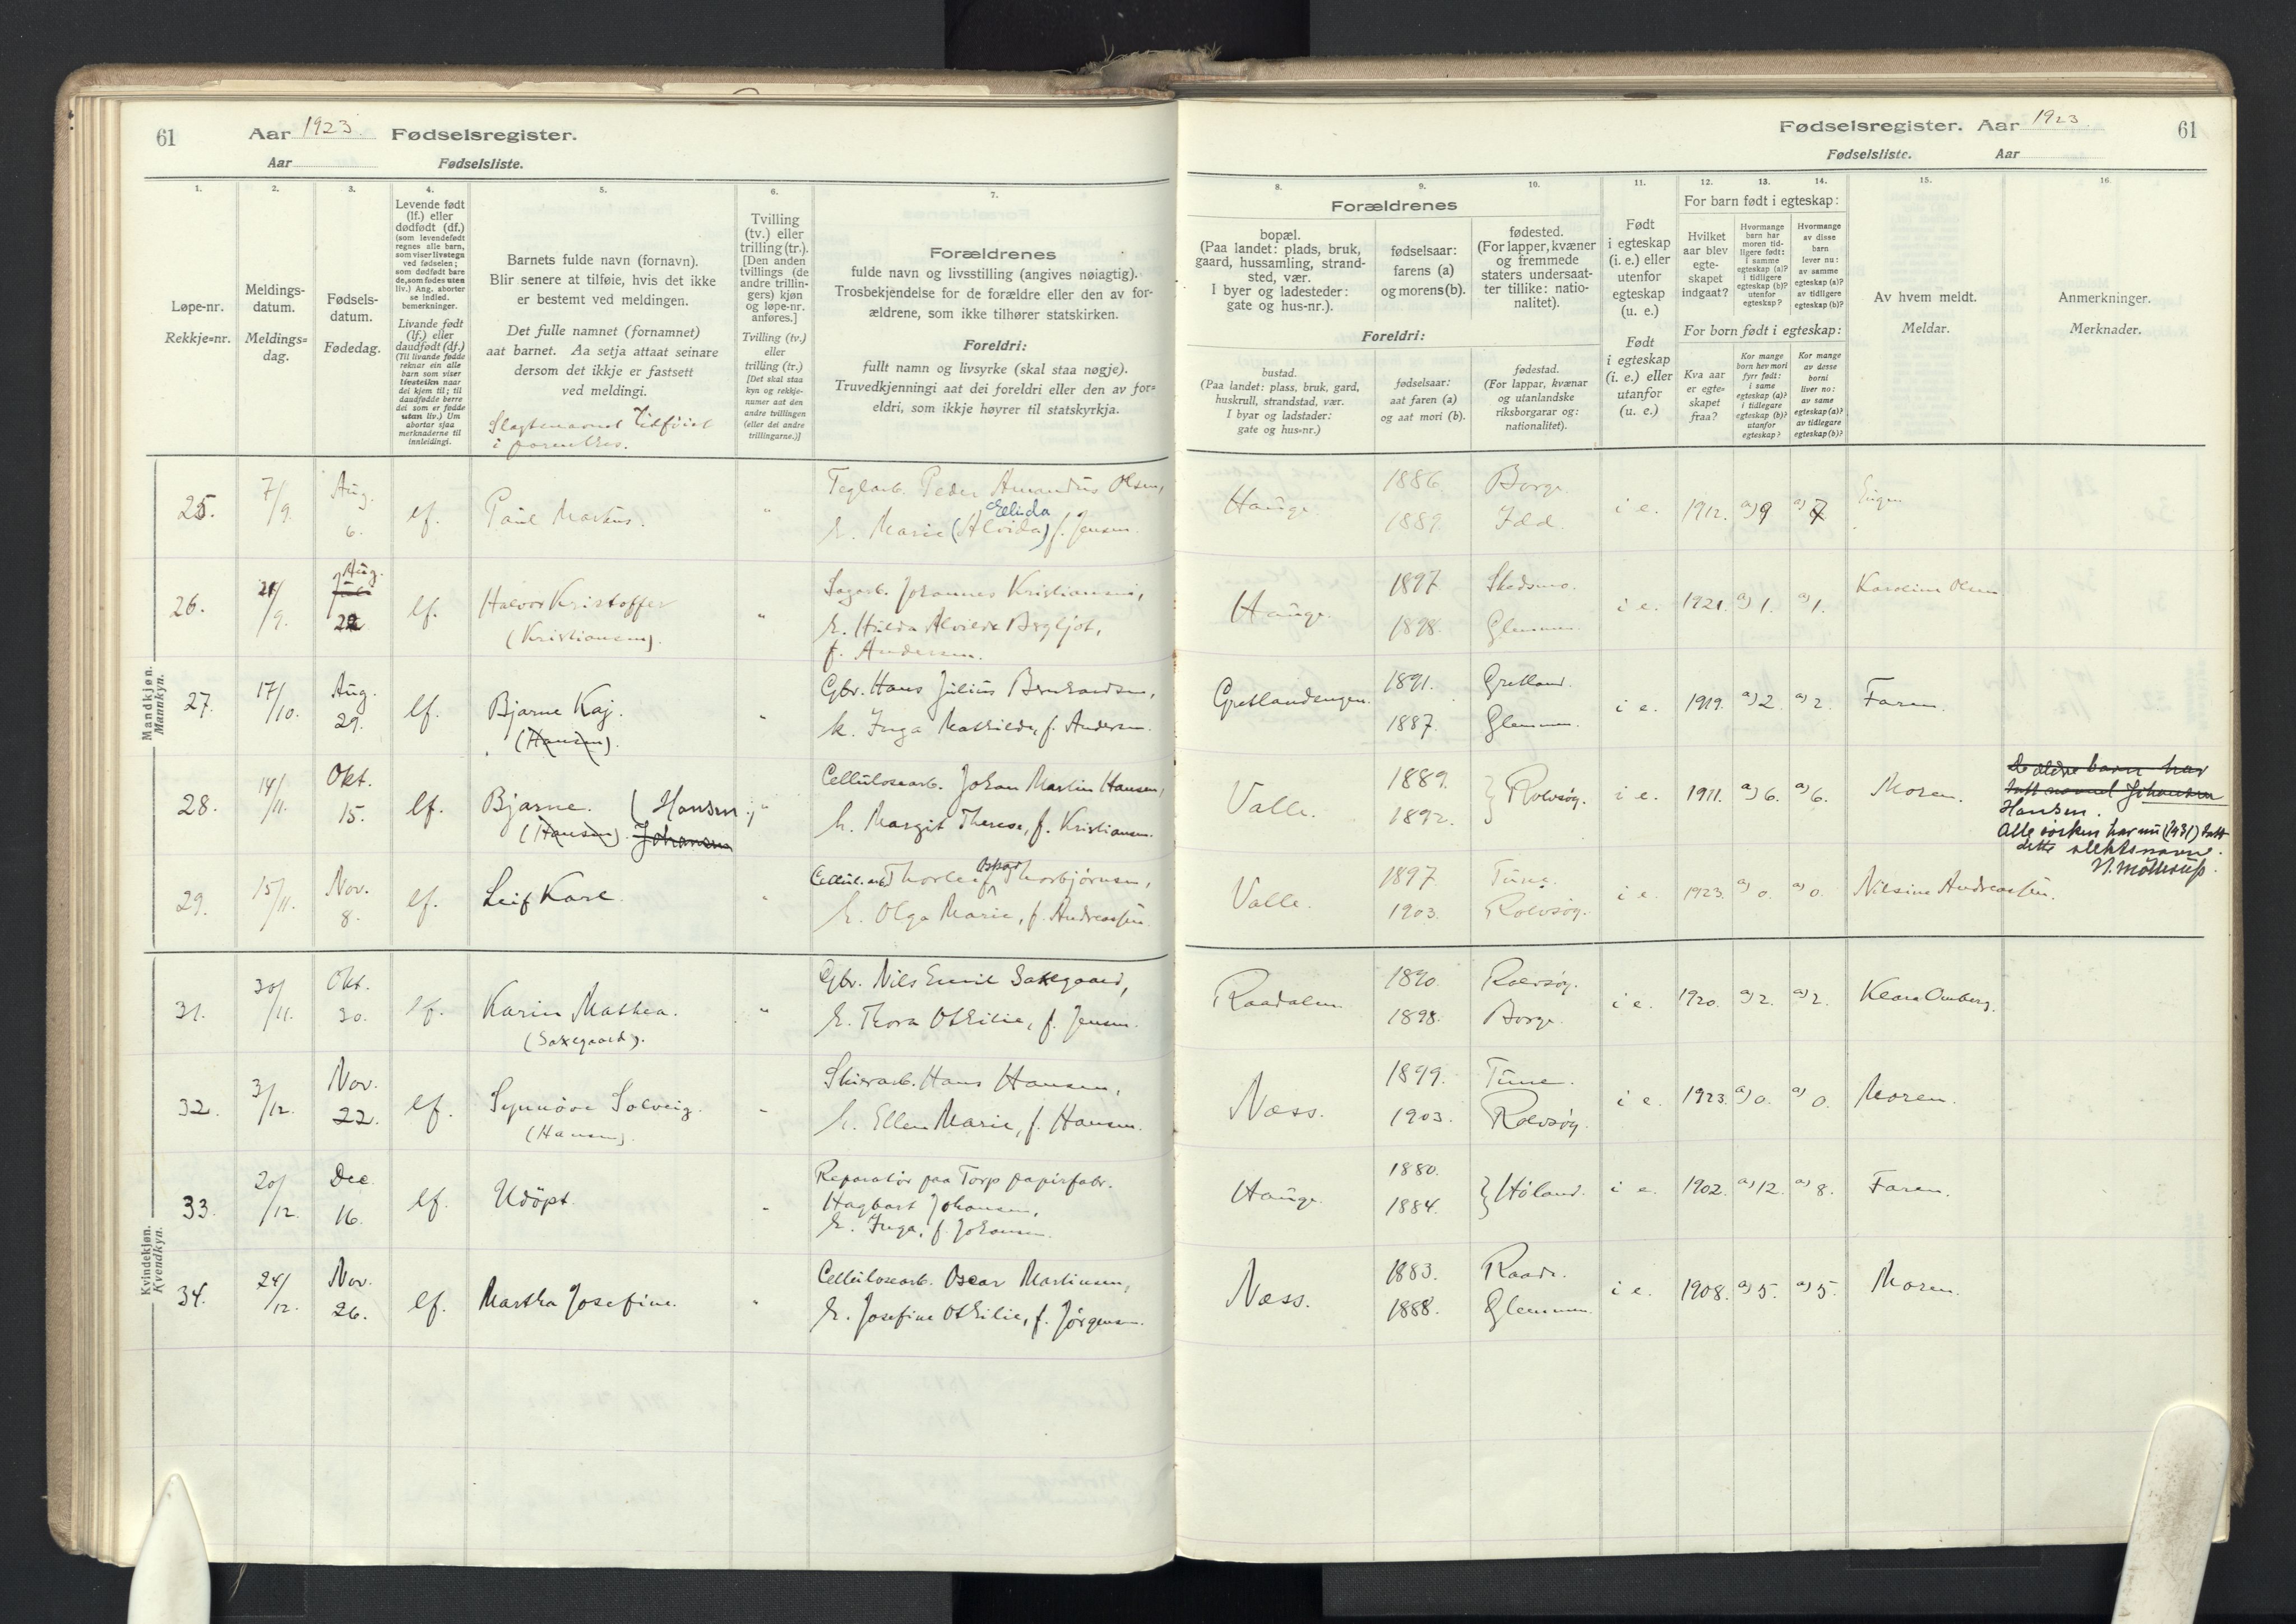 61 Aar 1923. Fødselsregister.
Aar Fødselsliste.
1. 2. 3. 4. 5. 6. 7.
Løpe-nr.
Rekkje=nr.
Meldings-
datum.
Meldings=
dag.
Fødsels-
datum.
Fødedag.
Levende født
(lf.) eller
dødfødt (df.)
(som levendefødt
regnes alle barn,
som viser livstegn
ved fødselen;
som dødfødt bare
de, som fødes uten
liv.) Ang. aborter
se indled.
bemerkninger.
Livande født
(lf.) eller
daudfødt (df.)
(Til livande fødde
reknar ein alle
barn som viser
livsteikn naar
dei kjem til; til
daudfødde berre
dei som er fødde
utan liv.) Um
abortar sjaa
merknaderne til
innleidingi.
Barnets fulde navn (fornavn).
Blir senere at tilføie, hvis det ikke
er bestemt ved meldingen.
Det fulle namnet (fornamnet)
aat barnet. Aa setja attaat seinare
dersom det ikkje er fastsett
ved meldingi.
Slagtsnavnet tilføiet
i parenthes.
Tvilling
(tv.) eller
trilling (tr.).
[Den anden
tvillings (de
andre trillin-
gers) kjøn
og løpe-nr.
anføres.]
Tvilling (tv.)
eller
trilling (tr.)
[Det skal staa
kyn og rekkje-
numer aat den
andre tvillingen
(eller dei andre
trillingarne.)]
Forældrenes
fulde navn og livsstilling (angives nøiagtig).
Trosbekjendelse for de forældre eller den av for-
ældrene, som ikke tilhører statskirken.
Foreldri:
fullt namn og livsyrke (skal staa nøgje).
Truvedkjenningi aat dei foreldri eller den av for=
eldri, som ikkje høyrer til statskyrkja.
Mandkjøn.
Mannkyn.
25. 7/9. Aug. 6. lf. Paul Markus. " Teglarb. Peder Amandus Olsen,
Ellida
h. Marie (Alvida) f. Jensen.
26. 21/9. Aug. Juli 22 lf. Halvor Kristoffer (Kristiansen). " Sagarb. Johannes Kristiansen,
h. Hulda Alvilde Bergljot,
f. Andersen.
27. 17/10. Aug. 29. lf. Bjarne Kaj. (Hansen). " Gbr. Hans Julius Bernhardsen,
h. Inga Mathilde, f. Andersen.
28. 14/11. Okt. 15. lf. Bjarne. (Hansen) (Hansen). Johansen " Cellulosearb. Johan Martin Hansen,
h. Margit Therese, f. Kristiansen.
29. 15/11. Nov. 8. lf. Leif Karl. " Cellul.arb. Thorleif Oskar Thorbjørnsen,
h. Olga Marie, f. Andreassen.
Kvindekjøn.
Kvendkyn.
31. 30/11. Okt. 30. lf. Karin Mathea. (Saxegaard). " Gbr. Nils Emil Saxegaard,
h. Thora Othilie, f. Jensen.
32. 3/12. Nov. 22. lf. Synnöve Solveig. (Hansen). " Skierarb. Hans Hansen,
h. Ellen Marie, f. Hansen.
33. 20/12. Dec. 16. lf. Udöpt. " Reparatör paa Torp papirfabr.
Hagbart Johansen,
h. Inga, f. Johansen.
34. 24/12. Nov. 26. lf. Martha Josefine. " Cellulosearb. Oscar Martinsen,
h. Josefine Othilie, f. Jörgensen.
Fødselsregister. Aar 1923 61
Fødselsliste. Aar
8. 9. 10. 11. 12. 13. 14. 15. 16.
Forældrenes
bopæl.
(Paa landet: plads, bruk,
gaard, hussamling, strand-
sted, vær.
I byer og ladesteder:
gate og hus-nr.).
fødselsaar:
farens (a)
og morens (b).
fødested.
(For lapper, kvæner
og fremmede
staters undersaat-
ter tillike: natio-
nalitet).
Foreldri:
bustad.
(Paa landet: plass, bruk, gard,
huskrull, strandstad, vær.
I byar og ladstader:
gate og hus=nr.)
fødselsaar:
aat faren (a)
og aat mori (b).
fødestad.
(For lappar, kvænar
og utanlandske
riksborgarar og:
nationalitet).
Født
i egteskap
(i. e.) eller
utenfor
egteskap
(u. e.)
Født
i egteskap
(i. e.) eller
utanfor
egteskap
(u. e.)
For barn født i egteskap:
Hvilket
aar blev
egte-
skapet
indgaat?
Hvormange
barn har
moren tid-
ligere født:
i samme
egteskap (a)?
i tidligere
egteskap (b)?
utenfor
egteskap?
Hvormange
av disse
barn
lever nu:
av samme
egteskap (a)?
av tidligere
egteskap (b)?
For born født i egteskap:
Kva aar
er egte=
skapet
fraa?
Kor mange
born hev mori
fyrr født:
i same
egteskap (a)?
i tidlegare
egteskap (b)?
utanfor
egteskap?
Kor mange
av desse
borni
liver no:
av same
egteskap (a)?
av tidlegare
egteskap (b)?
Av hvem meldt.
Meldar.
Anmerkninger.
Merknader.
Hauge. 1886. 1889. Borge. Idd. i e. 1912. a) 9 a) 7
Hauge. 1897 1898. Skedsmo. Glemmen. i e. 1921. a) 1. a) 1. Karoline Olsen
Gretlandsengen. 1891. 1887. Gretland. Glemmen. i e. 1919. a) 2. a) 2. Faren.
Valle. 1889. 1892. } Rolvsöy. i e. 1911. a) 6. a) 6. Moren.
De ældre barn har
tatt navnet Johansen
Hansen.
Alle søsken har nu (1931) tatt
dette slektsnavn.
N. Møllerup.
Valle. 1897. 1903. Tune. Rolvsöy. i e. 1923. a) 0. a) 0. Nilsine Andreassen.
Raadalen. 1890. 1898. Rolvsöy. Borge. i e. 1920. a) 2. a) 2. Klara Omberg.
Næss. 1899. 1903. Tune. Rolvsöy. i e. 1923. a) 0. a) 0. Moren.
Hauge. 1880. 1884. } Höland. i e. 1902. a) 12. a) 8. Faren.
Næss. 1883. 1888. Raade. Glemmen. i e. 1908. a) 5. a) 5. Moren.